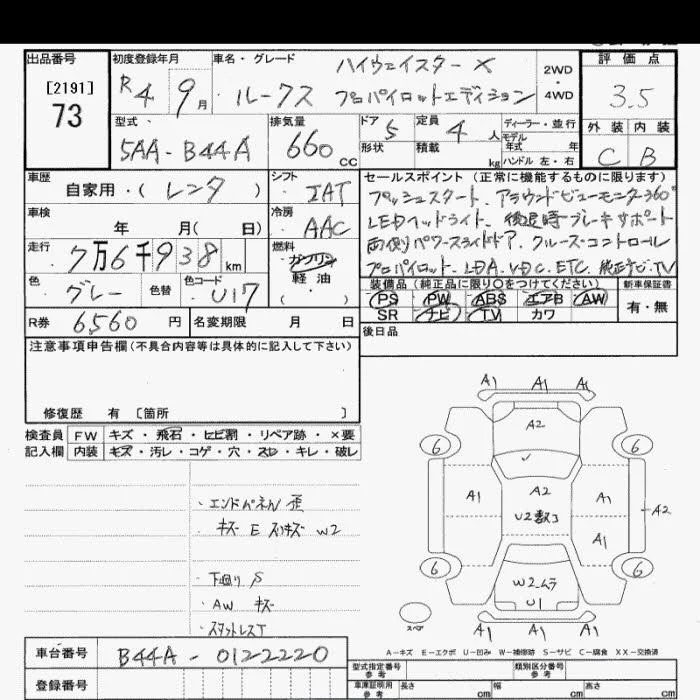 出品番号 初度登録年月 車名・グレード 評価点
[2191]
73
R4 9月
ハイウェイスターX
ルークス プロパイロットエディション
2WD
・
4WD
3.5
型式 排気量 ドア 定員 ディーラー・並行
5AA-B44A 660cc 5 4人
モデル
年式 年
形状 積載 kg ハンドル 左・右
外装 内装
C B
車歴 シフト セールスポイント(正常に機能するものに限ります)
自家用・(レンタ) IAT
プッシュスタート、アラウンドビューモニター360°
車検 年 月( 日) 冷房 AAC
LEDヘッドライト、後退時ブレーキサポート
走行 7万6千938km 燃料
ガソリン
軽油
・
( )
両側パワースライドドア、クルーズコントロール
プロパイロット、LDA、VDC、ETC、純正ナビ、TV
色 グレー 色替 色コード U17
装備品(純正品に限り○をつけてください) 新車保証書
PS PW ABS エアB AW 有・無
SR ナビ TV カワ
R券 6,560円 名変期限 月 日
後日品
注意事項申告欄(不具合内容等は具体的に記入して下さい)
修復歴 有 [箇所 ]
検査員 FW キズ・飛石・ヒビ割・リペア跡・×要
記入欄 内装 キズ・汚レ・コゲ・穴・スレ・キレ・破レ
・エンドパネル 歪
・キズ E スリキズ W2
・下回り S
・AW キズ
・スタットレスT
A1 A1 A1
A2
6 6
A1 A2 A1 A2
U2数コ
A1
6 6
W2ムラ
U1
スペア
A1 A1 A1
A-キズ E-エクボ U-凹み W-補修跡 S-サビ C-腐食 XX-交換済
車台番号 B44A-0122220
登録番号
型式指定番号 類別区分番号
参考 参考
車庫証明用 長さ 幅 高さ
参考 cm cm cm